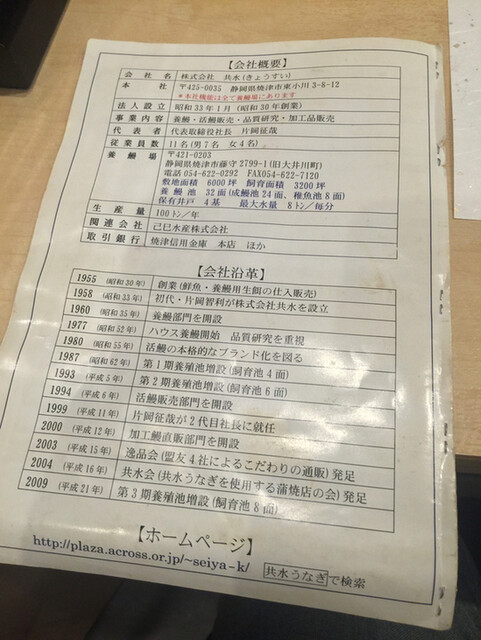 【会社概要】
会社名 株式会社 共水(きょうすい)
本社 〒425-0035 静岡県焼津市東小川3-8-12
*本社機能は全て養鰻場にあります
法人設立 昭和33年1月(昭和30年創業)
事業内容 養鰻・活鰻販売・品質研究・加工品販売
代表者 代表取締役社長 片岡征哉
従業員数 11名(男7名 女4名)
養鰻場 〒421-0203
静岡県焼津市藤守2799-1(旧大井川町)
電話054-622-0292 FAX054-622-7120
敷地面積 6000坪 飼育面積 3200坪
養鰻池 32面(成鰻池24面、稚魚池8面)
保有井戸 4基 最大水量 8トン/毎分
生産量 100トン/年
関連会社 己巳水産株式会社
取引銀行 焼津信用金庫 本店 ほか
【会社沿革】
1955 (昭和30年) 創業(鮮魚・養鰻用生餌の仕入販売)
1958 (昭和33年) 初代・片岡智利が株式会社共水を設立
1960 (昭和35年) 養鰻部門を開設
1977 (昭和52年) ハウス養鰻開始 品質研究を重視
1980 (昭和55年) 活鰻の本格的なブランド化を図る
1987 (昭和62年) 第1期養殖池増設(飼育池4面)
1993 (平成5年) 第2期養殖池増設(飼育池6面)
1994 (平成6年) 活鰻販売部門を開設
1999 (平成11年) 片岡征哉が2代目社長に就任
2000 (平成12年) 加工鰻直販部門を開設
2003 (平成15年) 逸品会(盟友4社によるこだわりの通販)発足
2004 (平成16年) 共水会(共水うなぎを使用する蒲焼店の会)発足
2009 (平成21年) 第3期養殖池増設(飼育池8面)
【ホームページ】
http://plaza.across.or.jp/~seiya-k/
共水うなぎで検索